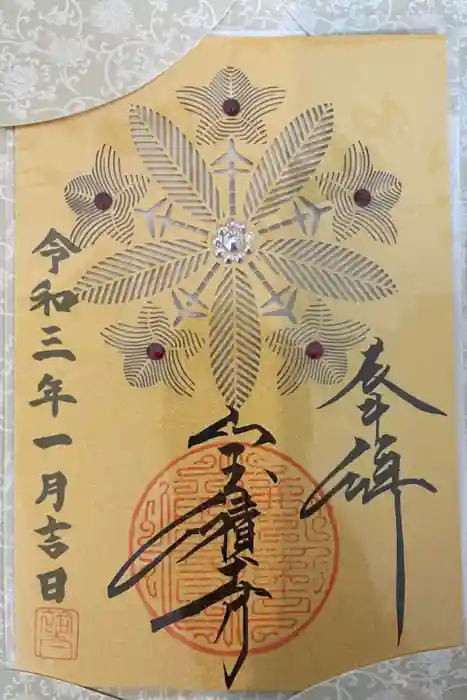 奉拝
宝積寺
令和三年一月吉日